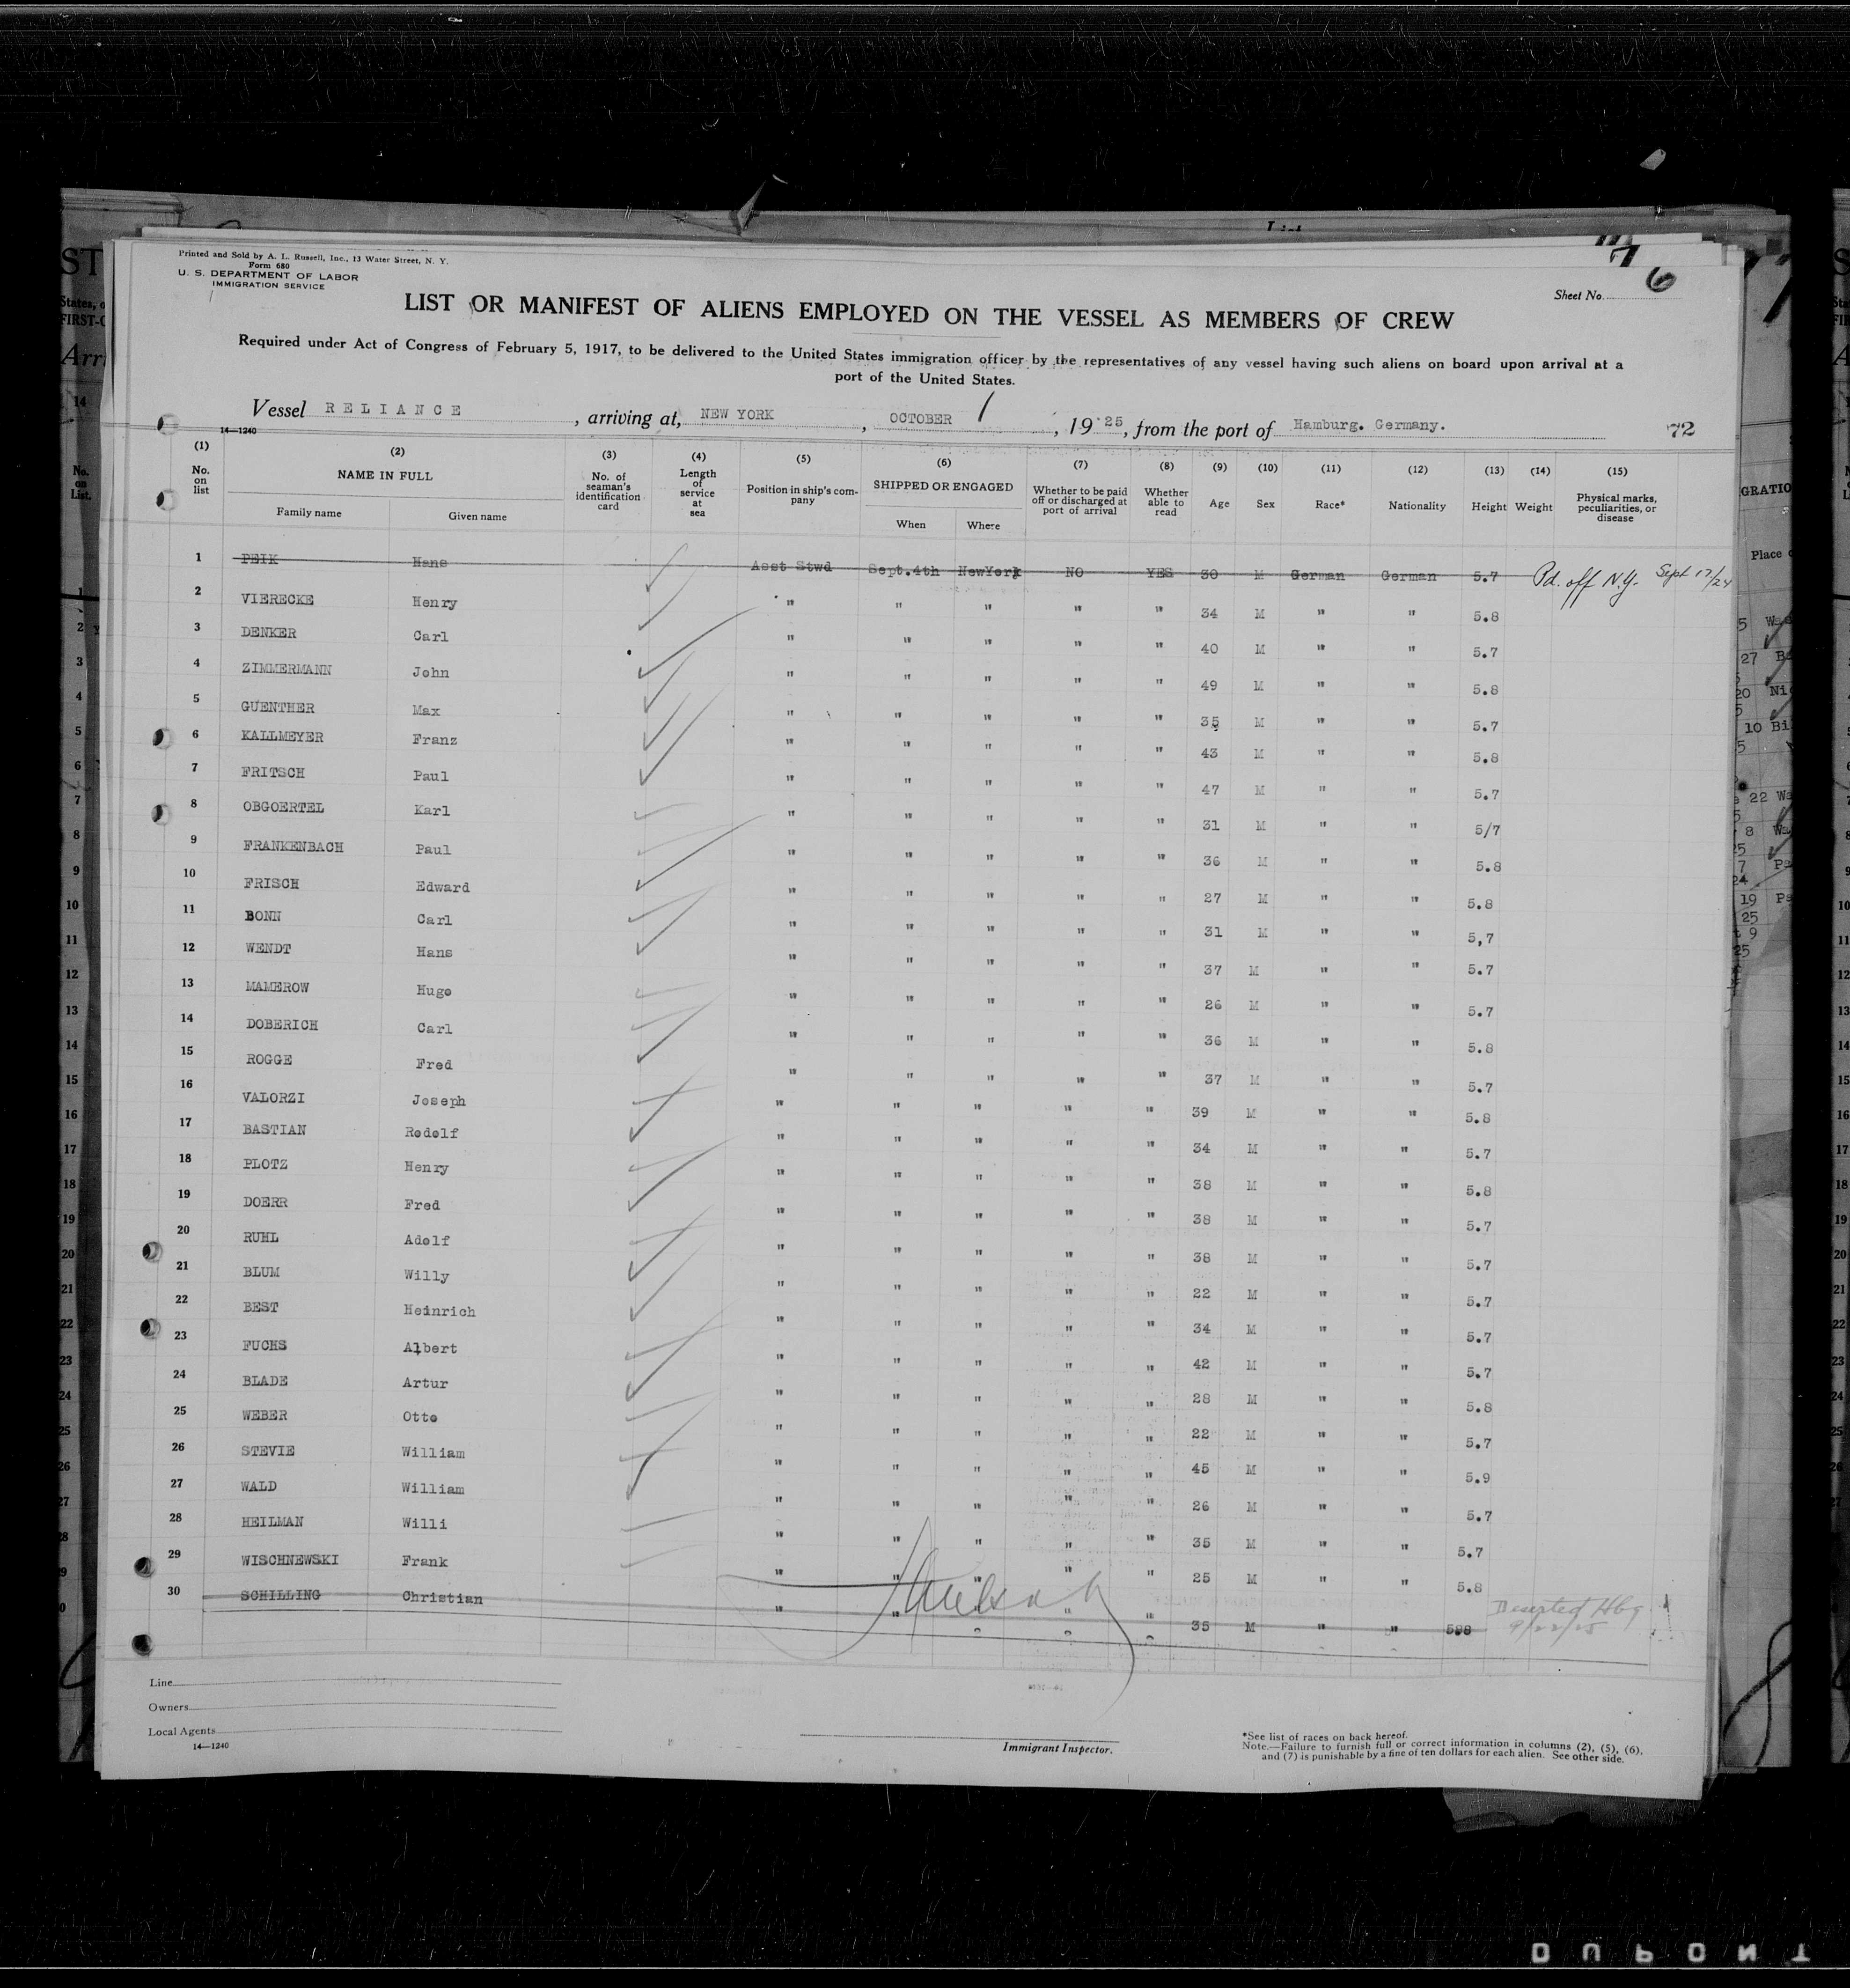 Printed and Sold by A. L. Russell, Inc., 13 Water Street, N. Y.
Form 680
U. S. DEPARTMENT OF LABOR
IMMIGRATION SERVICE
Sheet No. 6
LIST OR MANIFEST OF ALIENS EMPLOYED ON THE VESSEL AS MEMBERS OF CREW
Required under Act of Congress of February 5, 1917, to be delivered to the United States immigration officer by the representatives of any vessel having such aliens on board upon arrival at a
port of the United States.
Vessel RELIANCE, arriving at, NEW YORK, OCTOBER 1, 1925, from the port of Hamburg. Germany.
14—1240
72
(1) (2) (3) (4) (5) (6) (7) (8) (9) (10) (11) (12) (13) (14) (15)
No. on list NAME IN FULL Family name Given name No. of seaman's identification card Length of service at sea Position in ship's company SHIPPED OR ENGAGED When Where Whether to be paid off or discharged at port of arrival Whether able to read Age Sex Race* Nationality Height Weight Physical marks, peculiarities, or disease
1 PEIK Hans Asst Stwd Sept.4th NewYork NO YES 30 M German German 5.7 Pd. off N.Y. Sept 17/24
2 VIERECKE Henry " " " " " 34 M " " 5.8
3 DENKER Carl " " " " " 40 M " " 5.7
4 ZIMMERMANN John " " " " " 49 M " " 5.8
5 GUENTHER Max " " " " " 35 M " " 5.7
6 KALLMEYER Franz " " " " " 43 M " " 5.8
7 FRITSCH Paul " " " " " 47 M " " 5.7
8 OBGOERTEL Karl " " " " " 31 M " " 5/7
9 FRANKENBACH Paul " " " " " 36 M " " 5.8
10 FRISCH Edward " " " " " 27 M " " 5.8
11 BONN Carl " " " " " 31 M " " 5,7
12 WENDT Hans " " " " " 37 M " " 5.7
13 MAMEROW Hugo " " " " " 26 M " " 5.7
14 DOBERICH Carl " " " " " 36 M " " 5.8
15 ROGGE Fred " " " " " 37 M " " 5.7
16 VALORZI Joseph " " " " " 39 M " " 5.8
17 BASTIAN Rodolf " " " " " 34 M " " 5.7
18 PLOTZ Henry " " " " " 38 M " " 5.8
19 DOERR Fred " " " " " 38 M " " 5.7
20 RUHL Adolf " " " " " 38 M " " 5.7
21 BLUM Willy " " " " " 22 M " " 5.7
22 BEST Heinrich " " " " " 34 M " " 5.7
23 FUCHS Albert " " " " " 42 M " " 5.7
24 BLADE Artur " " " " " 28 M " " 5.8
25 WEBER Otto " " " " " 22 M " " 5.7
26 STEVIE William " " " " " 45 M " " 5.9
27 WALD William " " " " " 26 M " " 5.7
28 HEILMAN Willi " " " " " 35 M " " 5.7
29 WISCHNEWSKI Frank " " " " " 25 M " " 5.8
30 SCHILLING Christian " " " " " 35 M " " Deserted Hbg 9/22/25
Line
Owners
Local Agents
14—1240
Immigrant Inspector.
*See list of races on back hereof.
Note.—Failure to furnish full or correct information in columns (2), (5), (6),
and (7) is punishable by a fine of ten dollars for each alien. See other side.
DUPONT